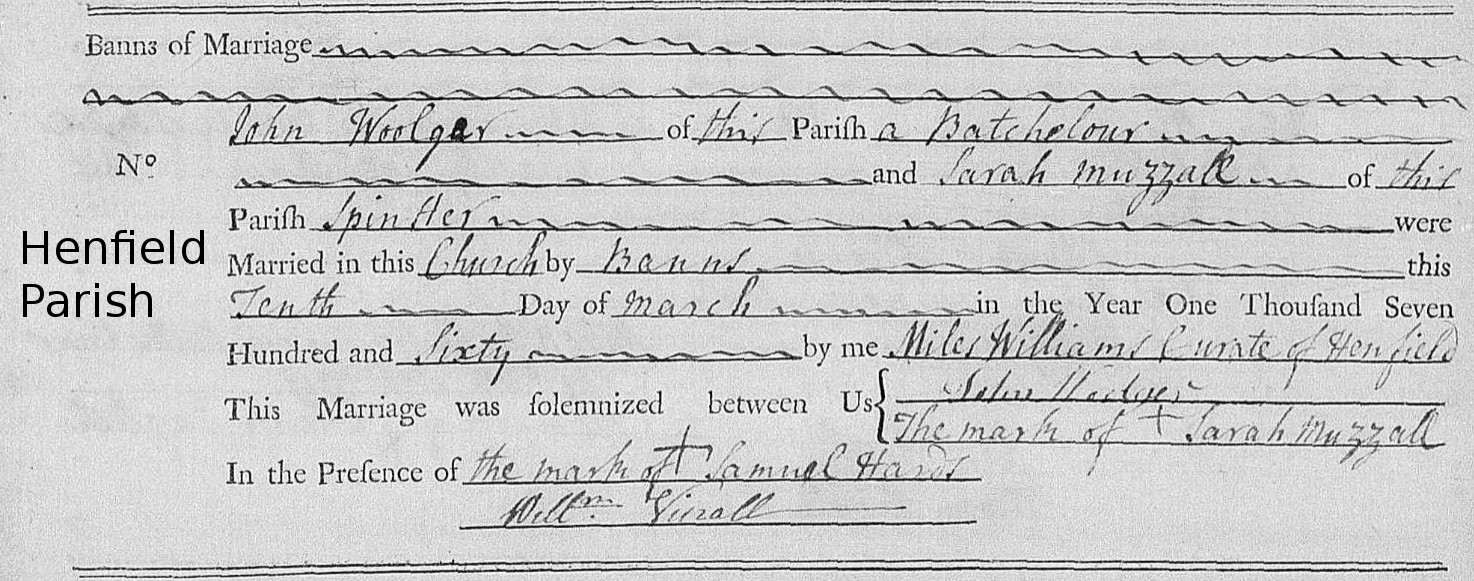 Banns of Marriage
John Woolgar of this Pariſh a Batchelour
No
and Sarah Muzzall of this
Pariſh Spinster were
Henfield
Married in this Church by Banns this
Parish
Tenth Day of March in the Year One Thouſand Seven
Hundred and Sixty by me Miles Williams Curate of Henfield
This Marriage was ſolemnized between Us John
The mark of + Sarah Muzzall
In the Preſence of the mark of + Samuel Hards
Willm. Vinall